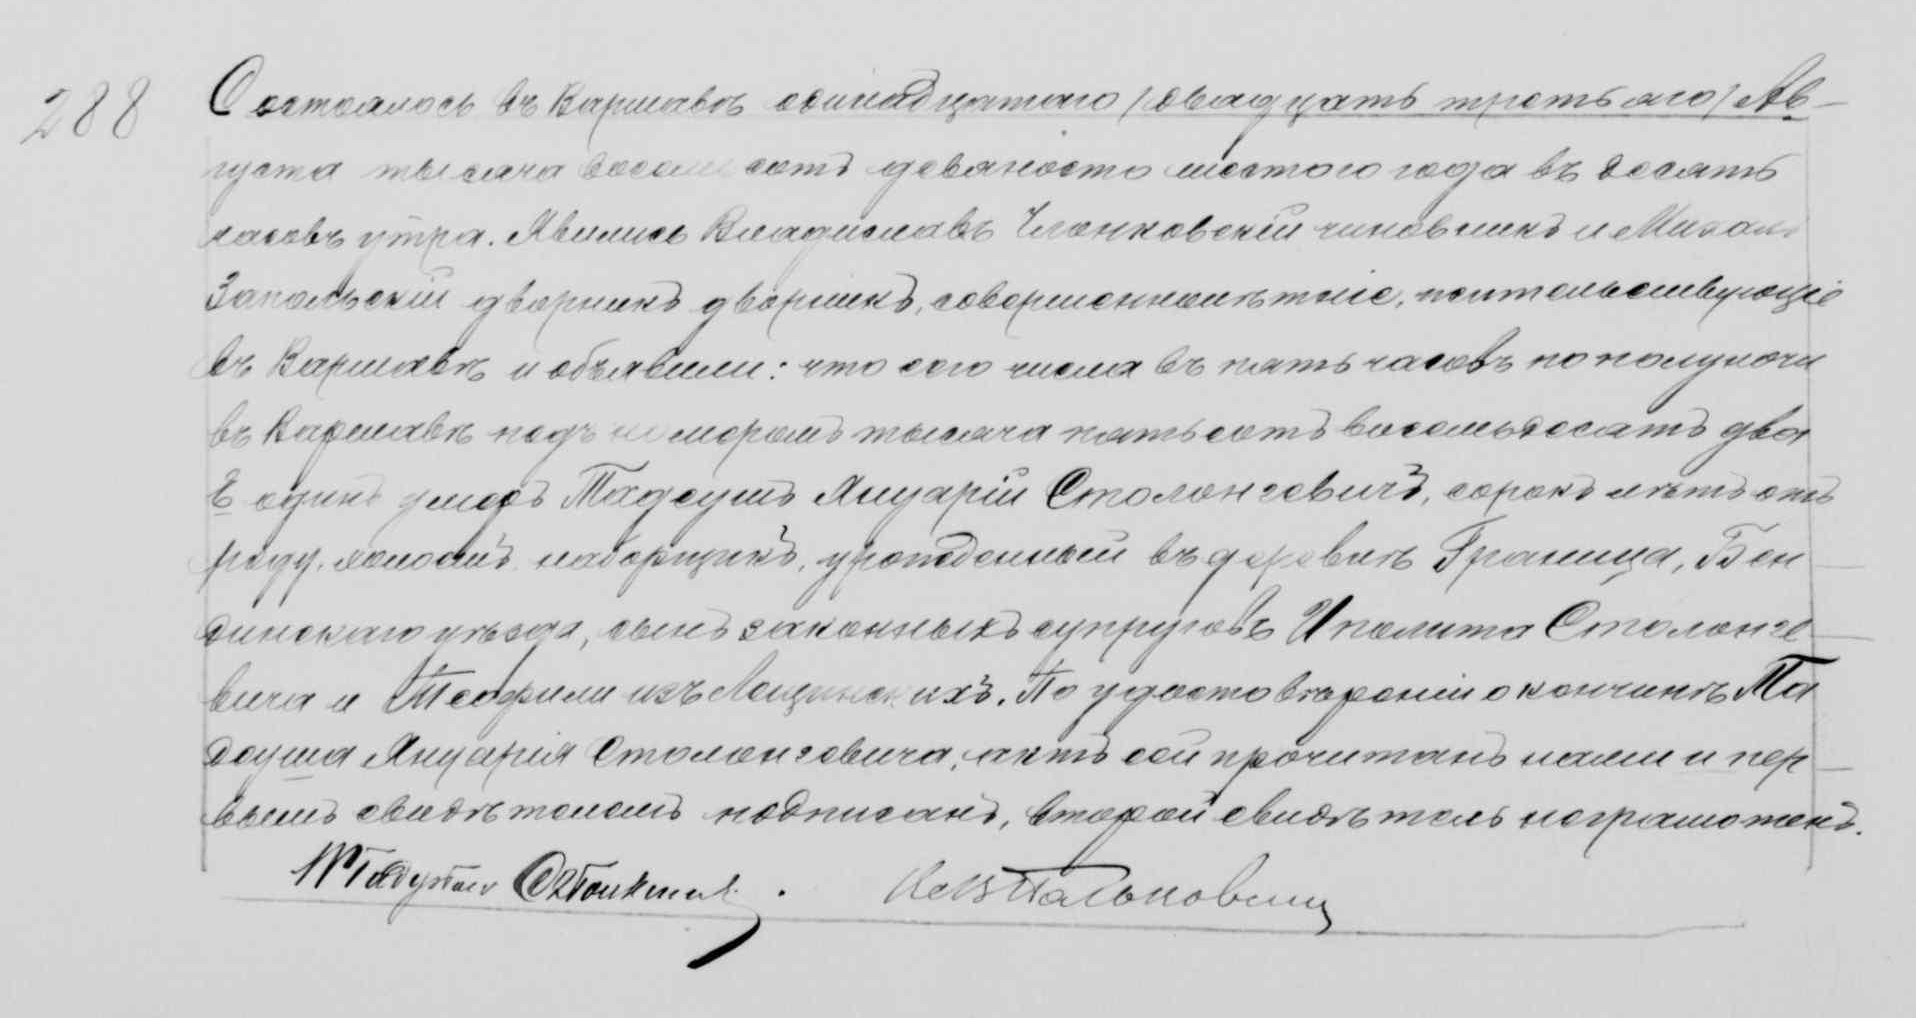 288
Состоялось въ Варшавѣ одинадцатаго /двадцать третьяго/ Ав-
густа тысяча восемьсотъ девяносто шестого года въ десять
часовъ утра. Явились Владиславъ Члонковскій чиновникъ и Михаилъ
Запольскій дворникъ дворникъ, совершеннолѣтніе, жительствующіе
въ Варшавѣ и объявили: что сего числа въ пять часовъ по полуночи
въ Варшавѣ подъ номеромъ тысяча пятьсотъ восемьдесятъ два
Е одинъ умеръ Тадеушъ Януарій Столонгевичъ, сорокъ лѣтъ отъ
роду, наборщикъ, урожденный въ деревнѣ Граница, Бен-
динскаго уѣзда, сынъ законныхъ супруговъ Иполита Столонге-
вича и Теофили изъ Лещинскихъ. По удостовѣреніи о кончинѣ Та
деуша Януарія Столонгевича, актъ сей прочитанъ нами и пер-
вымъ свидѣтелемъ подписанъ, второй свидѣтель неграмотенъ.